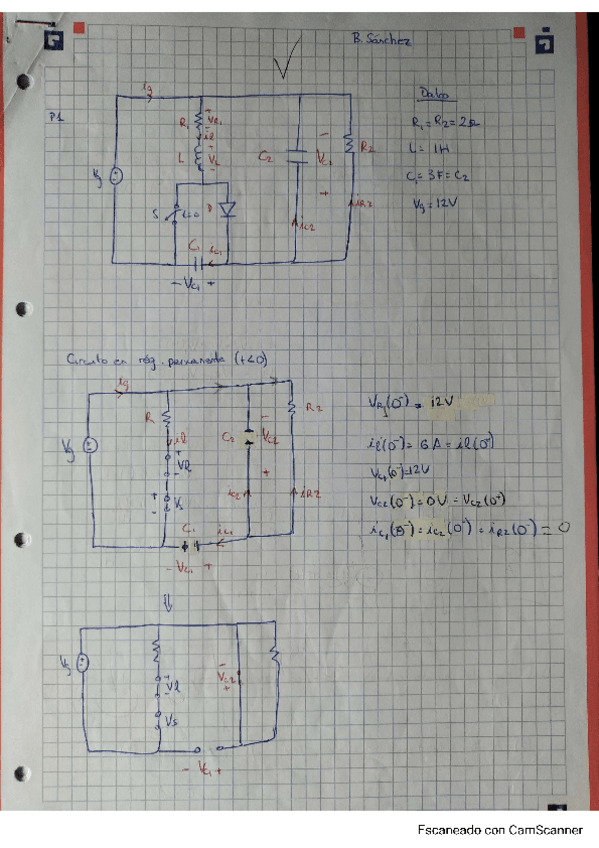 B. Sánchez
P1
Datos
R₁ = R₂ = 2Ω
L = 1H
C₁ = 3F = C₂
Vg = 12V
ig
R₁
+
VR₁
-
il
L
+
VL
-
C₂
-
Vc₂
+
R₂
Vg
S
t=0
D
ic2
iR2
C₁
ic₁
- Vc₁ +
Circuito en rég. permanente (t<0)
ig
R₁
il
+
Vl
-
+
Vs
-
Vg
C₂
-
Vc2
+
R₂
ic2
iR2
C₁
ic₁
- Vc₁ +
VR₁(0⁻) = 12V
il(0⁻) = 6A = il(0⁺)
Vc₁(0⁻) = 12V
Vc2(0⁻) = 0V = Vc2(0⁺)
ic₁(0⁻) = ic₂(0⁻) = iR2(0⁻) = 0
⇓
Vg
+
Vl
-
Vs
-
Vc2
+
- Vc₁ +
Escaneado con CamScanner